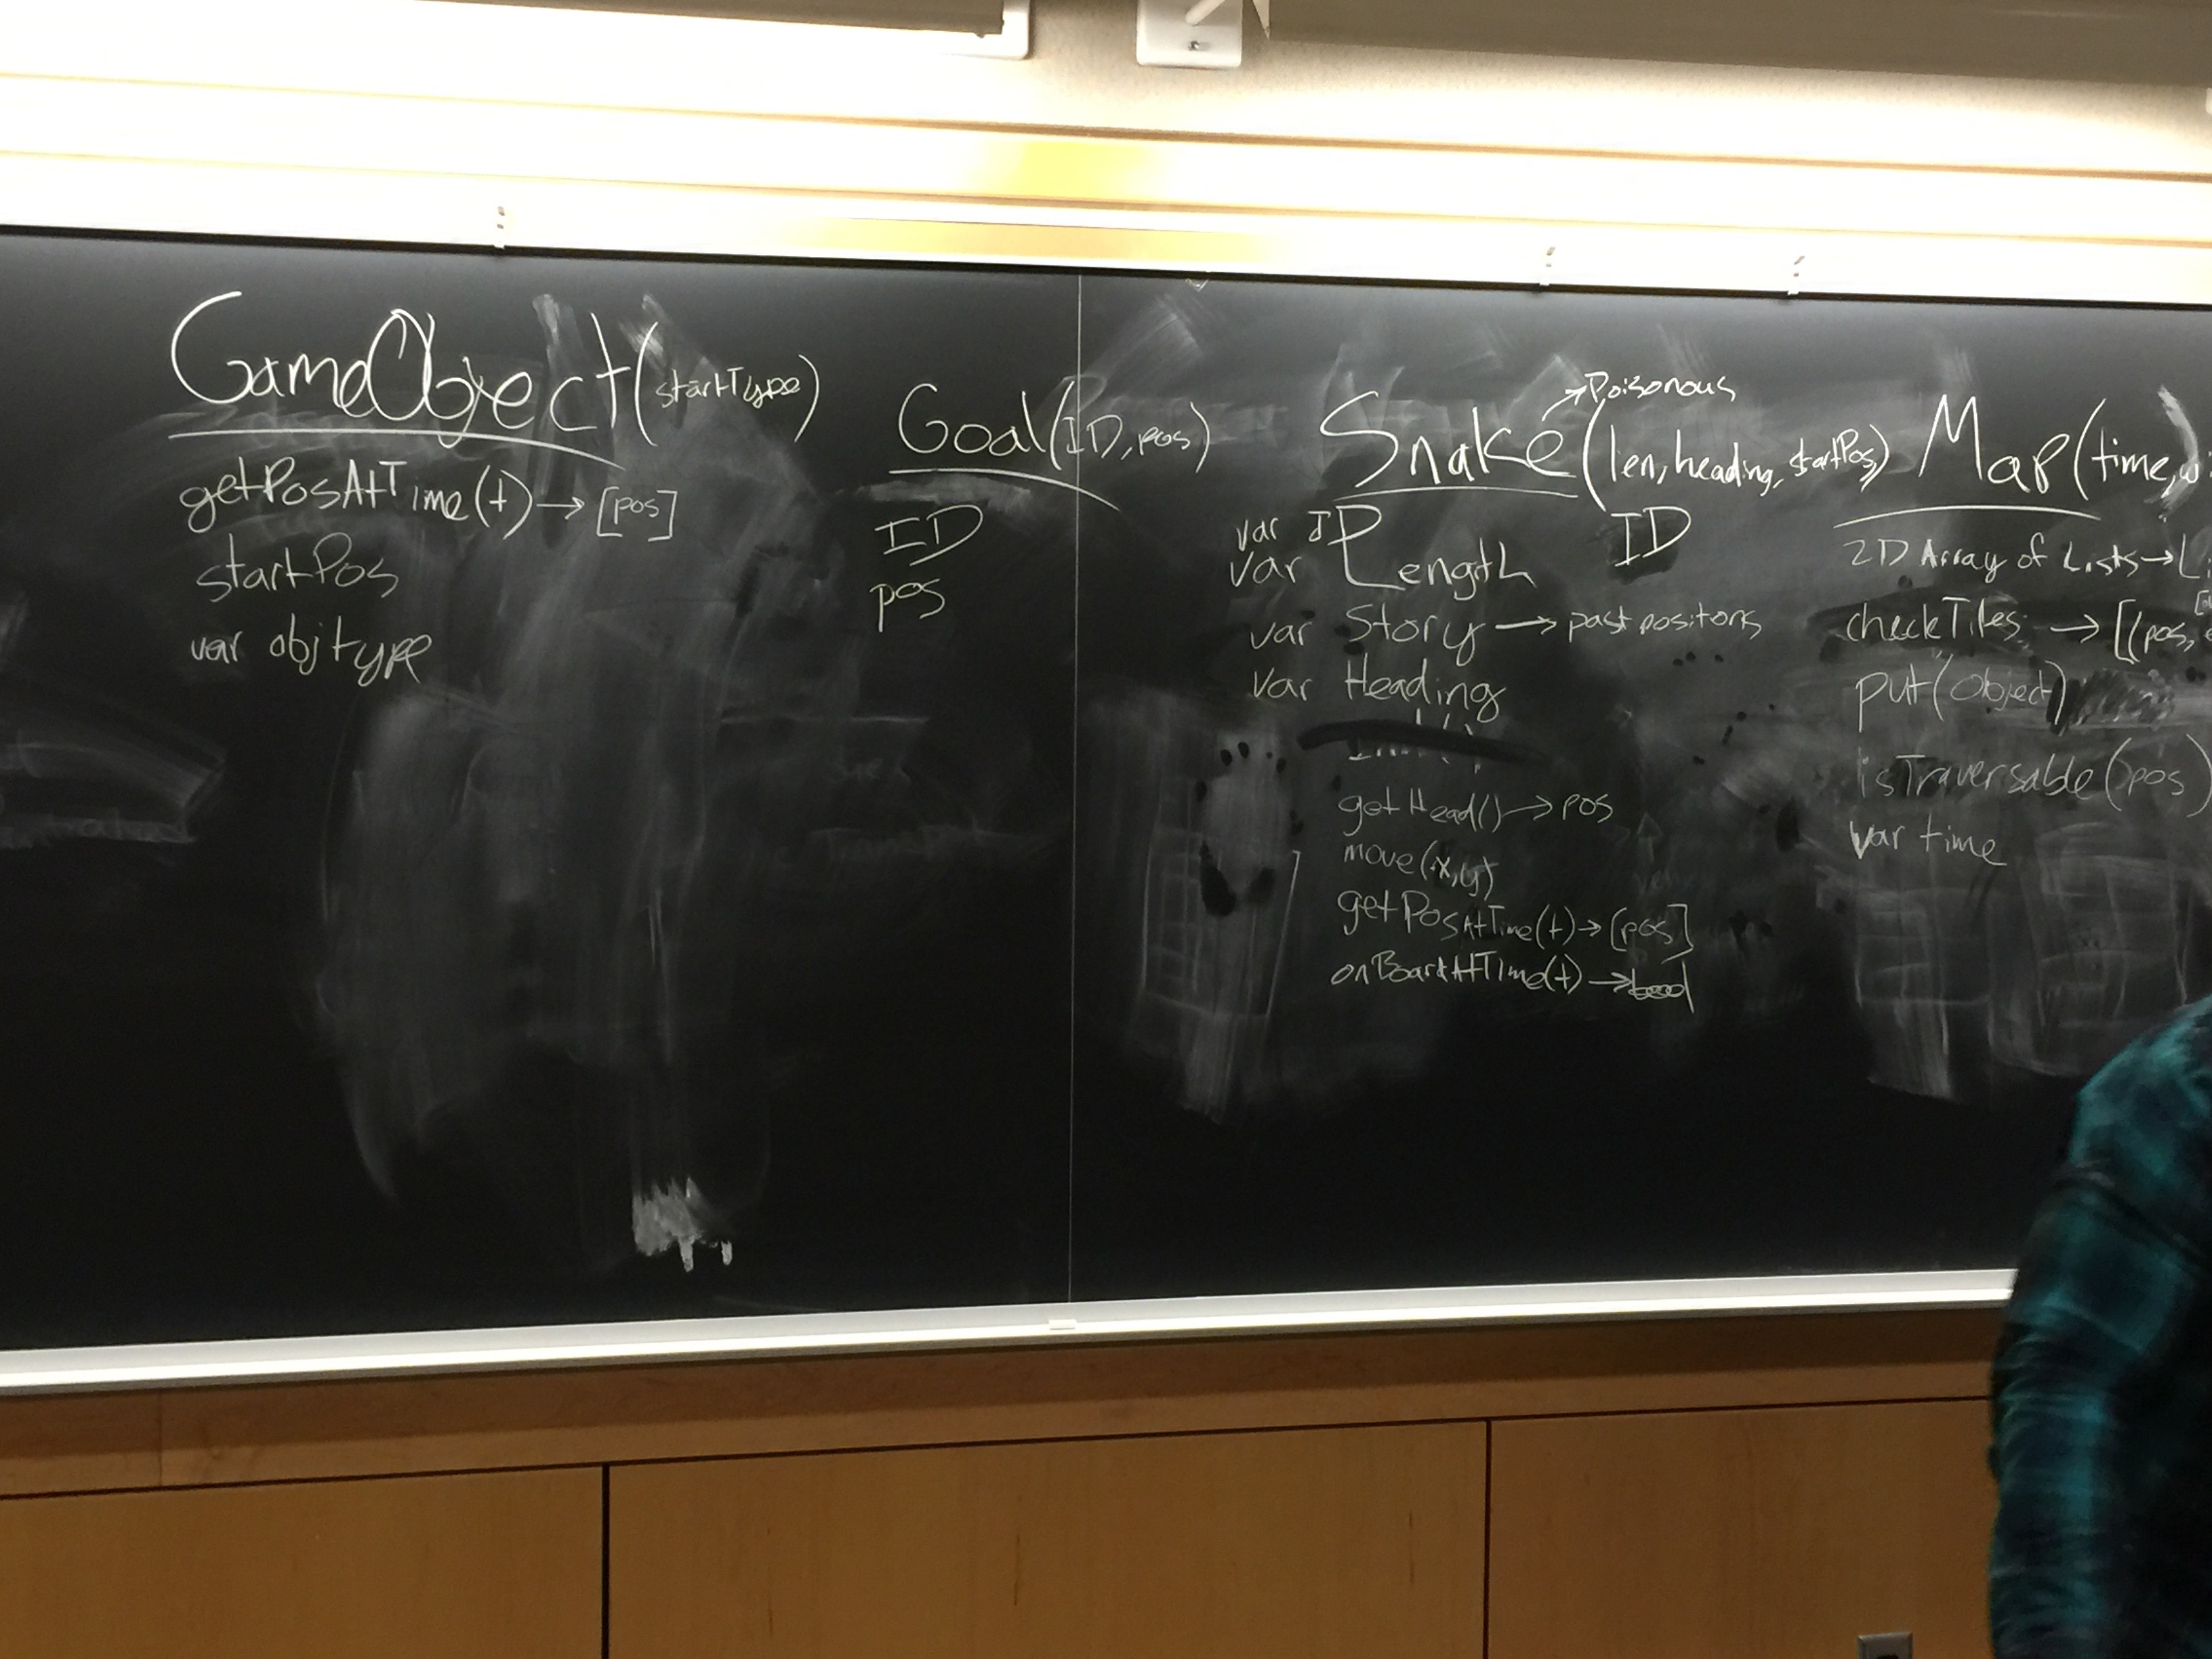 GameObject(startType)
getPosAtTime(t) → [pos]
startPos
var objtype
Goal(ID, pos)
ID
pos
→ Poisonous
Snake (len, heading, startPos)
var ID
ID
var Length
var Story → past positions
var Heading
getHead() → pos
move(x,y)
getPosAtTime(t) → [pos]
onBoardAtTime(t) → bool
Map(time, w
2D Array of Lists → Li
checkTiles → [(pos,
put(Object)
isTraversable(pos)
var time